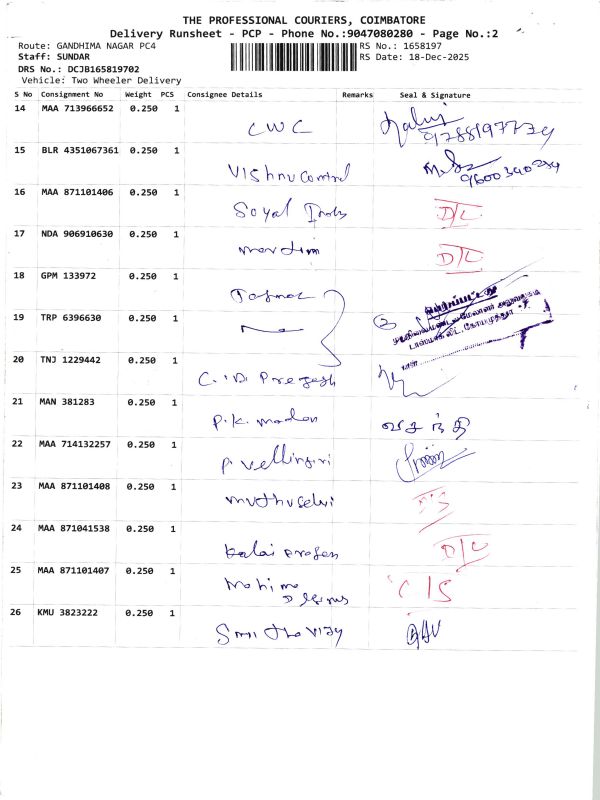 THE PROFESSIONAL COURIERS, COIMBATORE
Delivery Runsheet - PCP - Phone No.:9047080280 - Page No.:2
Route: GANDHIMA NAGAR PC4 RS No.: 1658197
Staff: SUNDAR RS Date: 18-Dec-2025
DRS No.: DCJB165819702
Vehicle: Two Wheeler Delivery
S No Consignment No Weight PCS Consignee Details Remarks Seal & Signature
14 MAA 713966652 0.250 1
CWC
15 BLR 4351067361 0.250 1
Vishnu Control
16 MAA 871101406 0.250 1
Soyal D/C
17 NDA 906910630 0.250 1
D/C
18 GPM 133972 0.250 1
19 TRP 6396630 0.250 1
20 TNJ 1229442 0.250 1
21 MAN 381283 0.250 1
P.K. வசந்தி
22 MAA 714132257 0.250 1
P. Vellingiri
23 MAA 871101408 0.250 1
Muthuselvi
24 MAA 871041538 0.250 1
Kalai D/C
25 MAA 871101407 0.250 1
Mahima C/S
26 KMU 3823222 0.250 1